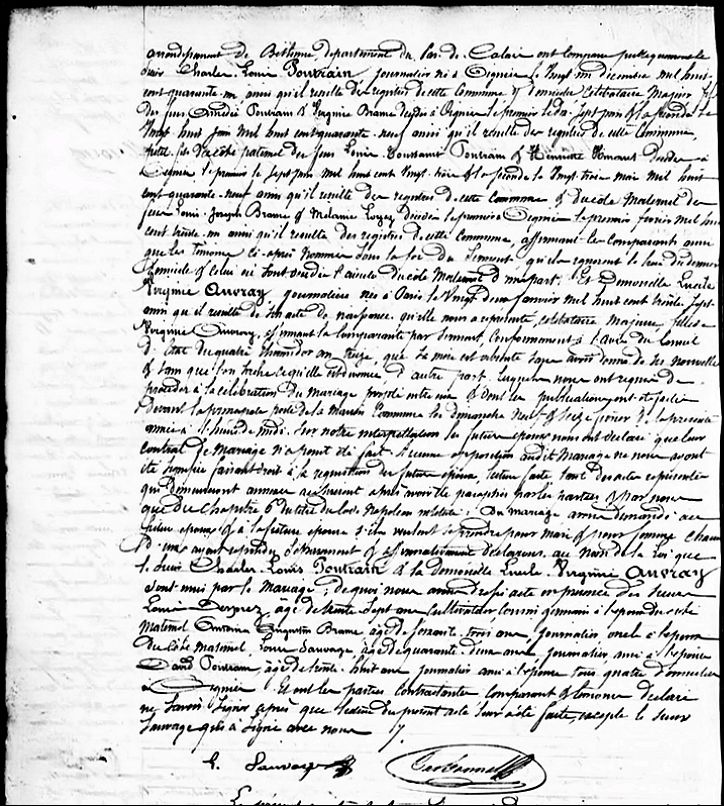 arrondissement de Béthune, département du Pas-de-Calais ont comparu publiquement le
Sieur Charles Louis Poutrain, journalier né à Oignies le Vingt un décembre mil huit
cent quarante-un ainsi qu'il résulte des registres de cette Commune y domicilié Célibataire Majeur fils
des feus Amédée Poutrain & Virginie Brame décédés à Oignies le premier le sept juin & la seconde le
Vingt huit juin mil huit cent quarante-neuf ainsi qu'il résulte des registres de cette Commune,
petit-fils du côté paternel des feus Louis Toussaint Poutrain & décédés à
Oignies le premier le sept juin mil huit cent Vingt-trois & la seconde le Vingt-trois mai mil huit
cent quarante-neuf ainsi qu'il résulte des registres de cette Commune & du côté Maternel des
feus Louis Joseph Brame & Mélanie décédés le premier à Oignies le premier février mil huit
cent trente-un ainsi qu'il résulte des registres de cette Commune, affirmant les Comparants ainsi
que les témoins ci-après nommés sous la foi du Serment qu'ils ignorent le lieu du dernier
domicile & celui où est décédée l'aïeule du côté Maternel d'une part. Et Demoiselle Lucile
Virginie Auvray, journalière née à Paris le Vingt deux janvier mil huit cent trente-sept
ainsi qu'il résulte de son acte de naissance qu'elle nous a représenté, célibataire majeure fille de
Virginie Auvray, affirmant la Comparante par serment, Conformément à l'avis du Conseil
d'Etat du quatre thermidor an treize, que Sa mère est absente sans avoir donné de ses nouvelles
& sans que l'on sache ce qu'elle est devenue, d'autre part. Lesquels nous ont requis de
procéder à la célébration du mariage projeté entre eux & dont les publications ont été faites
devant la principale porte de la Maison Commune les dimanches neuf & seize février de la présente
année à l'heure de midi. Sur notre interpellation les futurs époux nous ont déclaré que leur
contrat de mariage n'a point été fait. Aucune opposition audit Mariage ne nous ayant
été signifiée faisant droit à la réquisition des futurs époux, lecture faite tant des actes représentés
qui demeureront annexés au présent après avoir été paraphés par les parties & par nous
que du Chapitre 6 du titre du Code Napoléon intitulé: Du mariage avons demandé au
futur époux & à la future épouse s'ils veulent se prendre pour mari & pour femme, chacun
d'eux ayant répondu séparément & affirmativement déclarons, au Nom de la Loi que
le Sieur Charles Louis Poutrain & la Demoiselle Lucile Virginie Auvray
sont unis par le Mariage; de quoi nous avons dressé acte en présence des Sieurs
Louis Desprez, âgé de trente sept ans cultivateur cousin germain à l'époux du côté
maternel Antoine Augustin Brame âgé de soixante-trois ans, journalier, oncle à l'époux
du côté Maternel, Louis Sauvage, âgé de quarante-deux ans journalier, ami à l'époux
David Poutrain, âgé de trente-huit ans journalier ami à l'épouse tous quatre domiciliés
à Oignies. Et ont les parties contractantes comparant & témoins déclaré
ne savoir Signer après que lecture du présent acte leur a été faite, excepté le Sieur
Sauvage qui a Signé avec nous
L. Sauvage